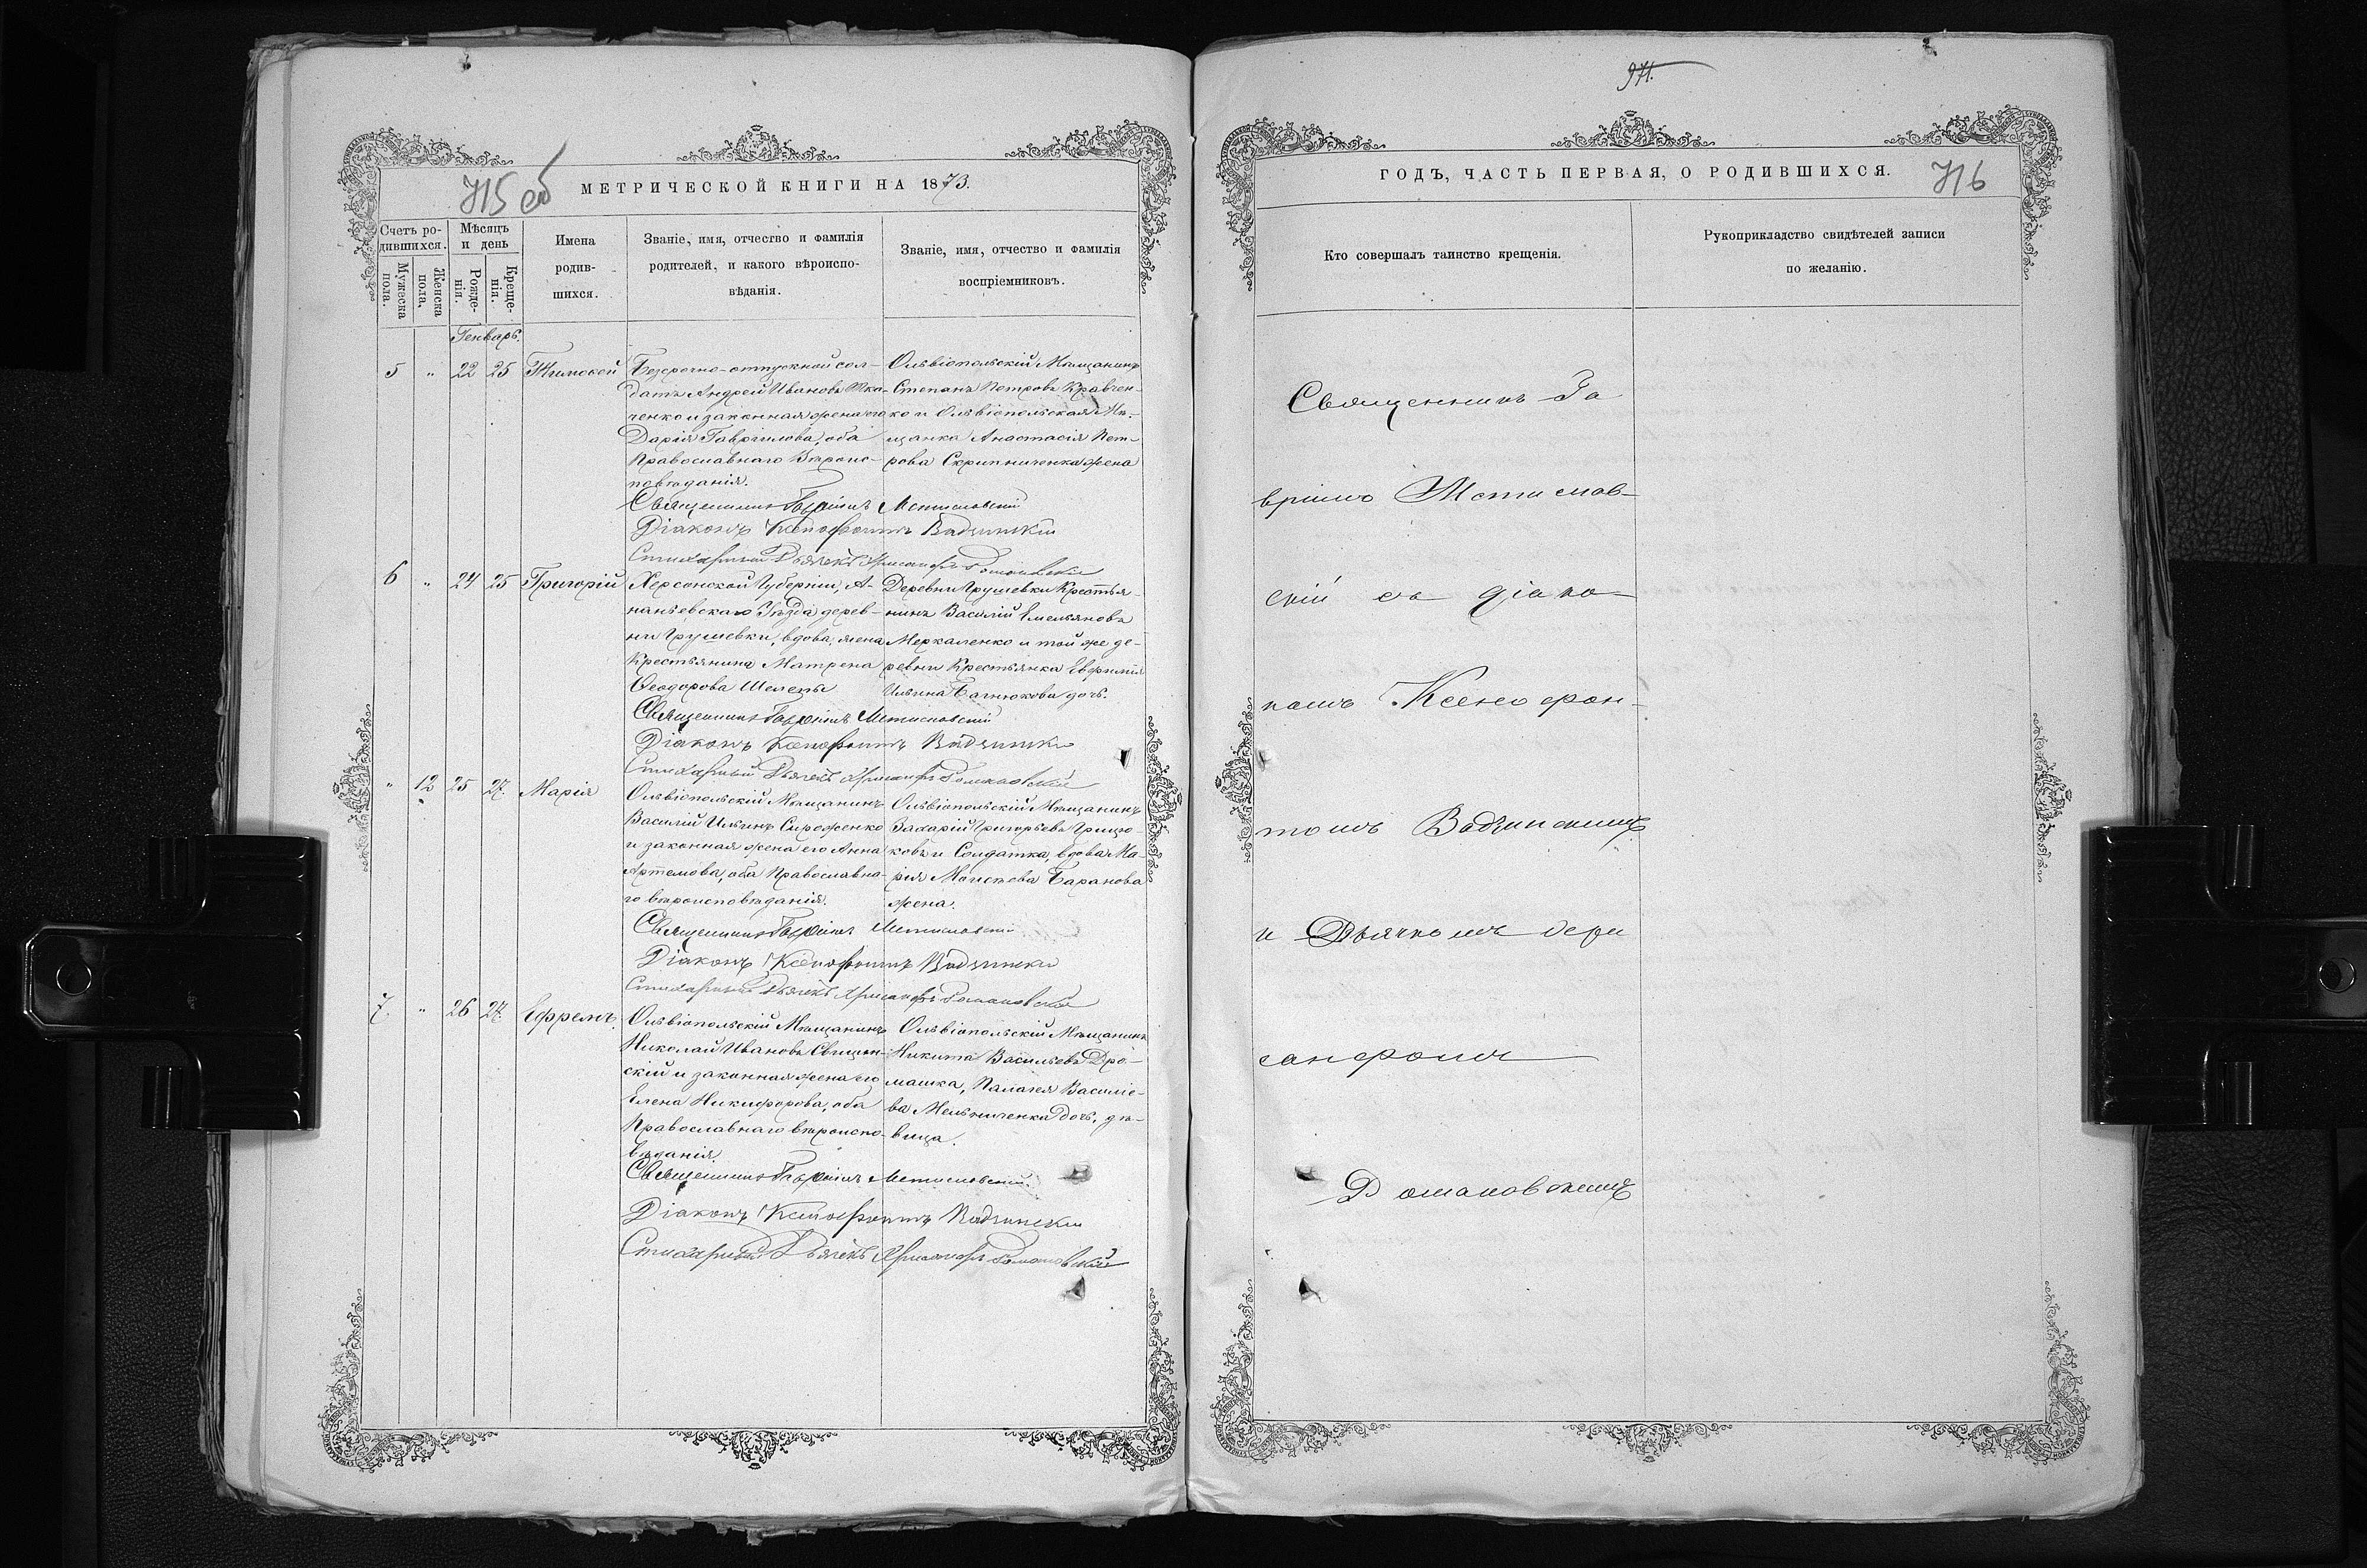 715 об
МЕТРИЧЕСКОЙ КНИГИ НА 1873.
Счетъ ро-
дившихся.
Мужеска
пола.
Женска
пола.
Мѣсяцъ
и день
Рожде-
нія.
Креще-
нія.
Имена
родив-
шихся.
Званіе, имя, отчество и фамилія
родителей, и какого вѣроиспо-
вѣданія.
Званіе, имя, отчество и фамилія
воспріемниковъ.
Генварь.
5 " 22 25 Тимофей
Безсрочно-отпускной сол-
датъ Андрей Ивановъ Тка-
ченко и законная жена его
Дарія Гавріилова, оба
Православнаго Вѣроис-
повѣданія.
Ольвіопольскій Мѣщанинъ
Степанъ Петровъ Кравчен-
ко и Ольвіопольская Мѣ-
щанка Анастасія Пет-
рова Скрипниченка жена
Священникъ Гавріилъ Мстиславскій
Діаконъ Ксенофонтъ Вадзинскій
Стихарный Дьячекъ Хрисанфъ Романовскій
6 " 24 25 Григорій
Херсонской Губерніи, А-
наньевскаго Уѣзда дерев-
ни Грушевки, вдова, жена
Крестьянина Матрена
Ѳеодорова Шелепы
Деревни Грушевки Крестья-
нинъ Василій Емельяновъ
Меркаленко и той же де-
ревни Крестьянка Евфимія
Ильина Багнюкова дочь.
Священникъ Гавріилъ Мстиславскій
Діаконъ Ксенофонтъ Вадзинскій
Стихарный Дьячекъ Хрисанфъ Романовскій
" 12 25 27 Марія
Ольвіопольскій Мѣщанинъ
Василій Ильинъ Сироженко
и законная жена его Анна
Артемова, оба Православна-
го вѣроисповѣданія.
Ольвіопольскій Мѣщанинъ
Захарій Григорьевъ Грицю-
ковъ и Солдатка, вдова Ма-
рія Моисеева Баранова
жена.
Священникъ Гавріилъ Мстиславскій
Діаконъ Ксенофонтъ Вадзинскій
Стихарный Дьячекъ Хрисанфъ Романовскій
7. " 26 27 Ефремъ.
Ольвіопольскій Мѣщанинъ
Николай Ивановъ
скій и законная жена его
Елена Никифорова, оба
Православнаго вѣроиспо-
вѣданія.
Ольвіопольскій Мѣщанинъ
Никита Васильевъ Дро-
машка, Палагея Василіе-
ва Мельниченка дочь, дѣ-
вица.
Священникъ Гавріилъ Мстиславскій
Діаконъ Ксенофонтъ Вадзинскій
Стихарный Дьячекъ Хрисанфъ Романовскій
971.
ГОДЪ, ЧАСТЬ ПЕРВАЯ, О РОДИВШИХСЯ.
716
Кто совершалъ таинство крещенія.
Рукоприкладство свидѣтелей записи
по желанію.
Священникъ Га
вріилъ Мстислав-
скій съ діако-
номъ Ксенофон-
томъ Вадзинскимъ
и Дьячкомъ Хри
санфомъ
Романовскимъ